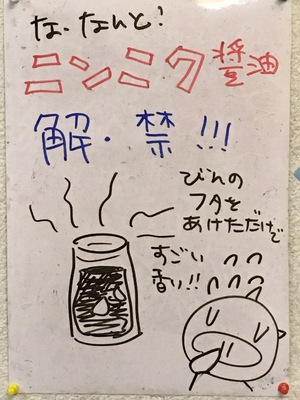 な、なんと！
ニンニク醤油
解・禁!!!
びんの
フタを
あけただけで
すごい
香り!!